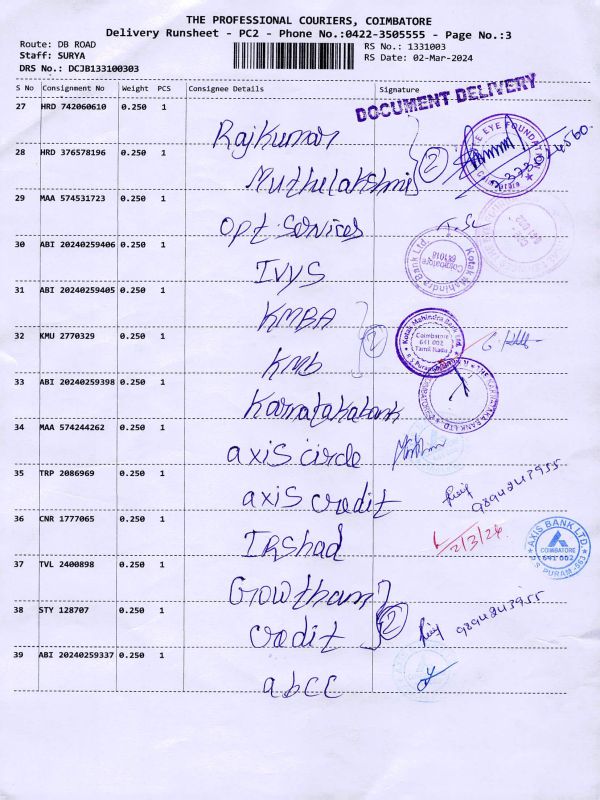 THE PROFESSIONAL COURIERS, COIMBATORE
Delivery Runsheet - PC2 - Phone No.:0422-3505555 - Page No.:3
Route: DB ROAD
RS No.: 1331003
Staff: SURYA
RS Date: 02-Mar-2024
DRS No.: DCJB133100303
S No Consignment No Weight PCS Consignee Details Signature
DOCUMENT DELIVERY
27 HRD 742060610 0.250 1 Rajkumar
28 HRD 376578196 0.250 1 Muthulakshmi 2
29 MAA 574531723 0.250 1 Opt Services
30 ABI 20240259406 0.250 1 IVYS
Kotak Mahindra Bank Ltd. Coimbatore
31 ABI 20240259405 0.250 1 KMBA
32 KMU 2770329 0.250 1 KMB 2
Kotak Mahindra Bank Ltd. Coimbatore 641 002 Tamil Nadu
33 ABI 20240259398 0.250 1 Karnatakabank
34 MAA 574244262 0.250 1 axis circle
35 TRP 2086969 0.250 1 axis credit 9894243955
36 CNR 1777065 0.250 1 IRShad 2/3/24
AXIS BANK LTD. COIMBATORE 641 002
37 TVL 2400898 0.250 1 Gowtham
38 STY 128707 0.250 1 credit 2 9894243955
39 ABI 20240259337 0.250 1 abcc